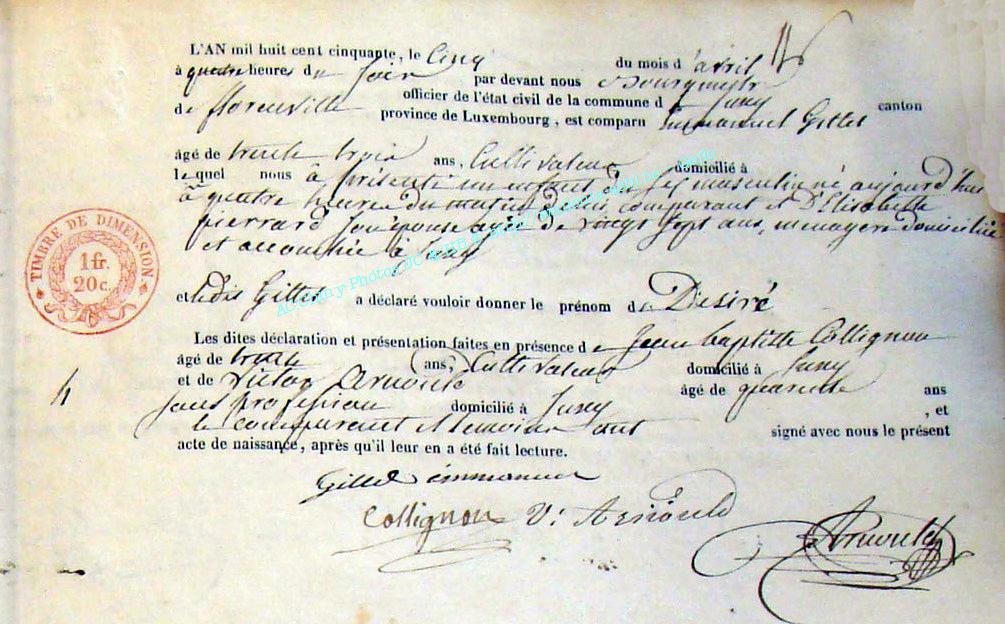 L'AN mil huit cent cinquante, le Cinq du mois d'avril
à quatre heures du Soir par devant nous Bourgmestre
officier de l'état civil de la commune de Juny canton
de florenville province de Luxembourg, est comparu Emmanuel Gillet
âgé de trente trois ans, Cultivateur domicilié à
lequel nous à présenté un enfant du sexe masculin né aujourd'hui
à quatre heures du matin de lui comparant et d'Elisabette
pierrard son épouse agée de vingt sept ans, menagere domiciliée
et accouchée à Juny
TIMBRE DE DIMENSION
1 fr.
20 c.
et ledit Gillet a déclaré vouloir donner le prénom de Desiré
Les dites déclaration et présentation faites en présence de Jean baptiste Collignon
âgé de trente ans, Cultivateur domicilié à Juny
et de Victor Arnould âgé de quarante ans
sans profession domicilié à Juny, et
le comparant et temoins ont signé avec nous le présent
acte de naissance, après qu'il leur en a été fait lecture.
Gillet emmanuel
Collignon V: Arnould
Arnould